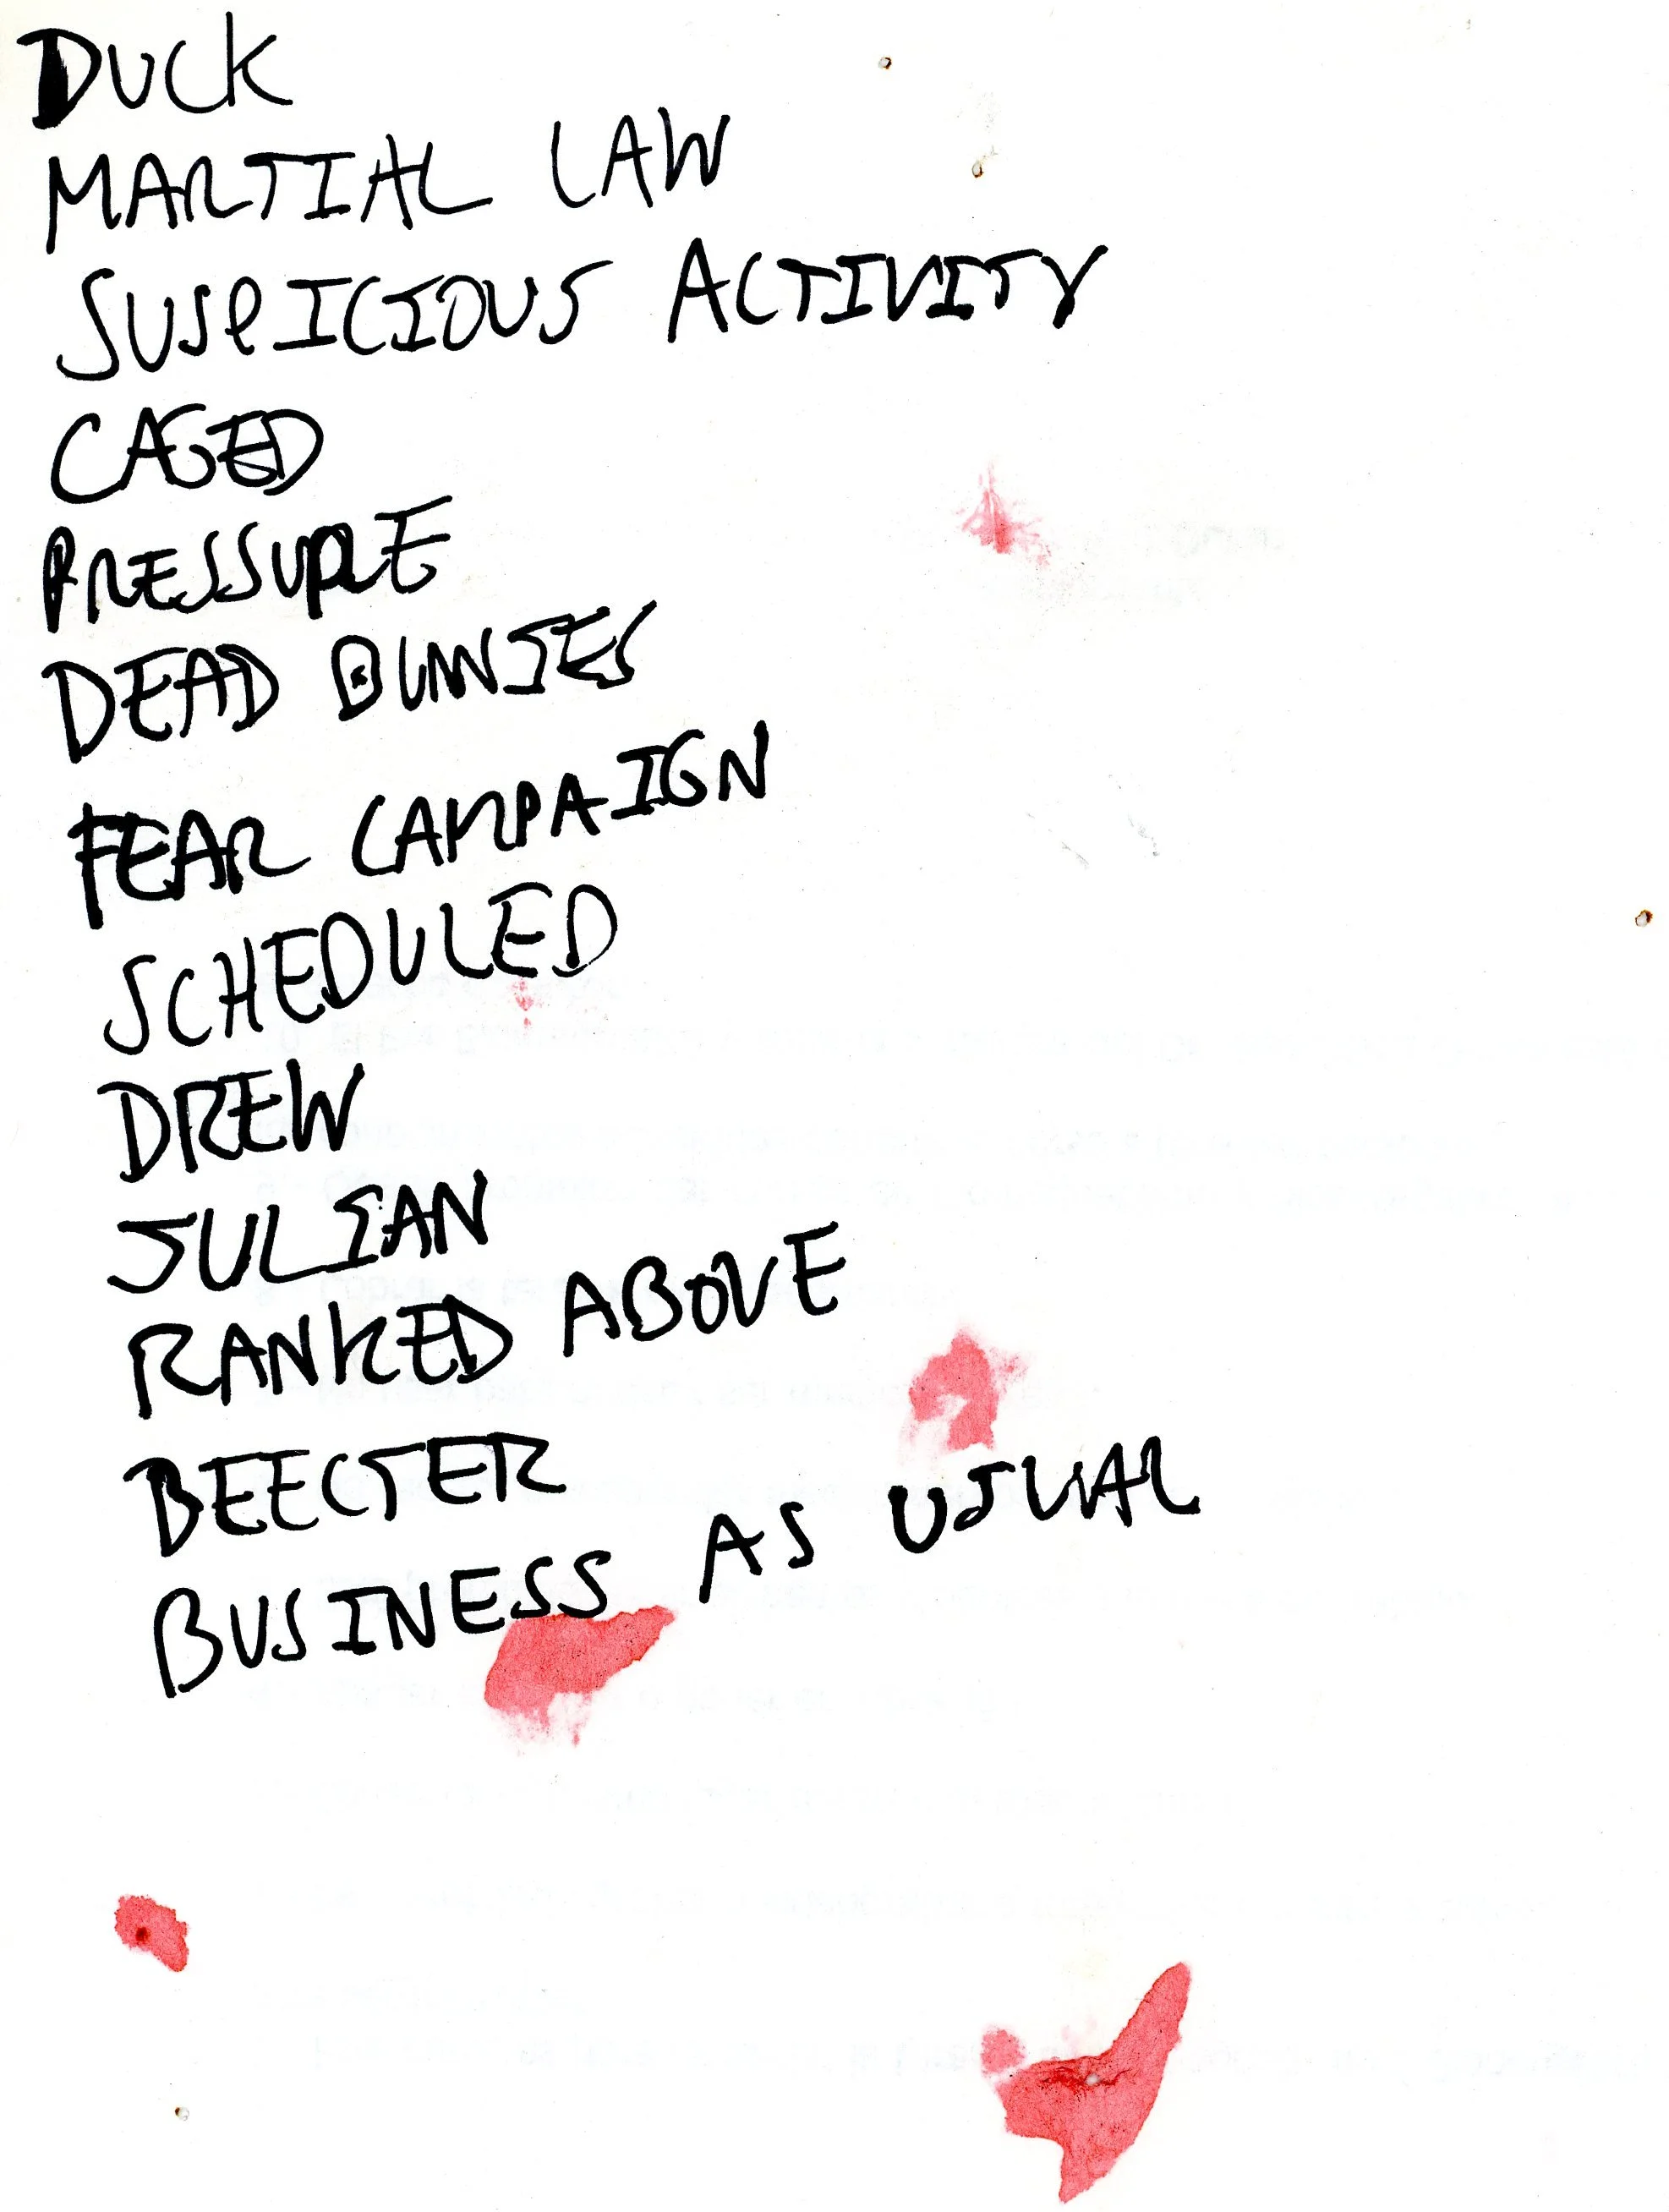 DUCK
MARTIAL LAW
SUSPICIOUS ACTIVITY
CAGED
PRESSURE
DEAD BUNNIES
FEAR CAMPAIGN
SCHEDULED
DREW
JULIAN
RANKED ABOVE
BEECTER
BUSINESS AS USUAL